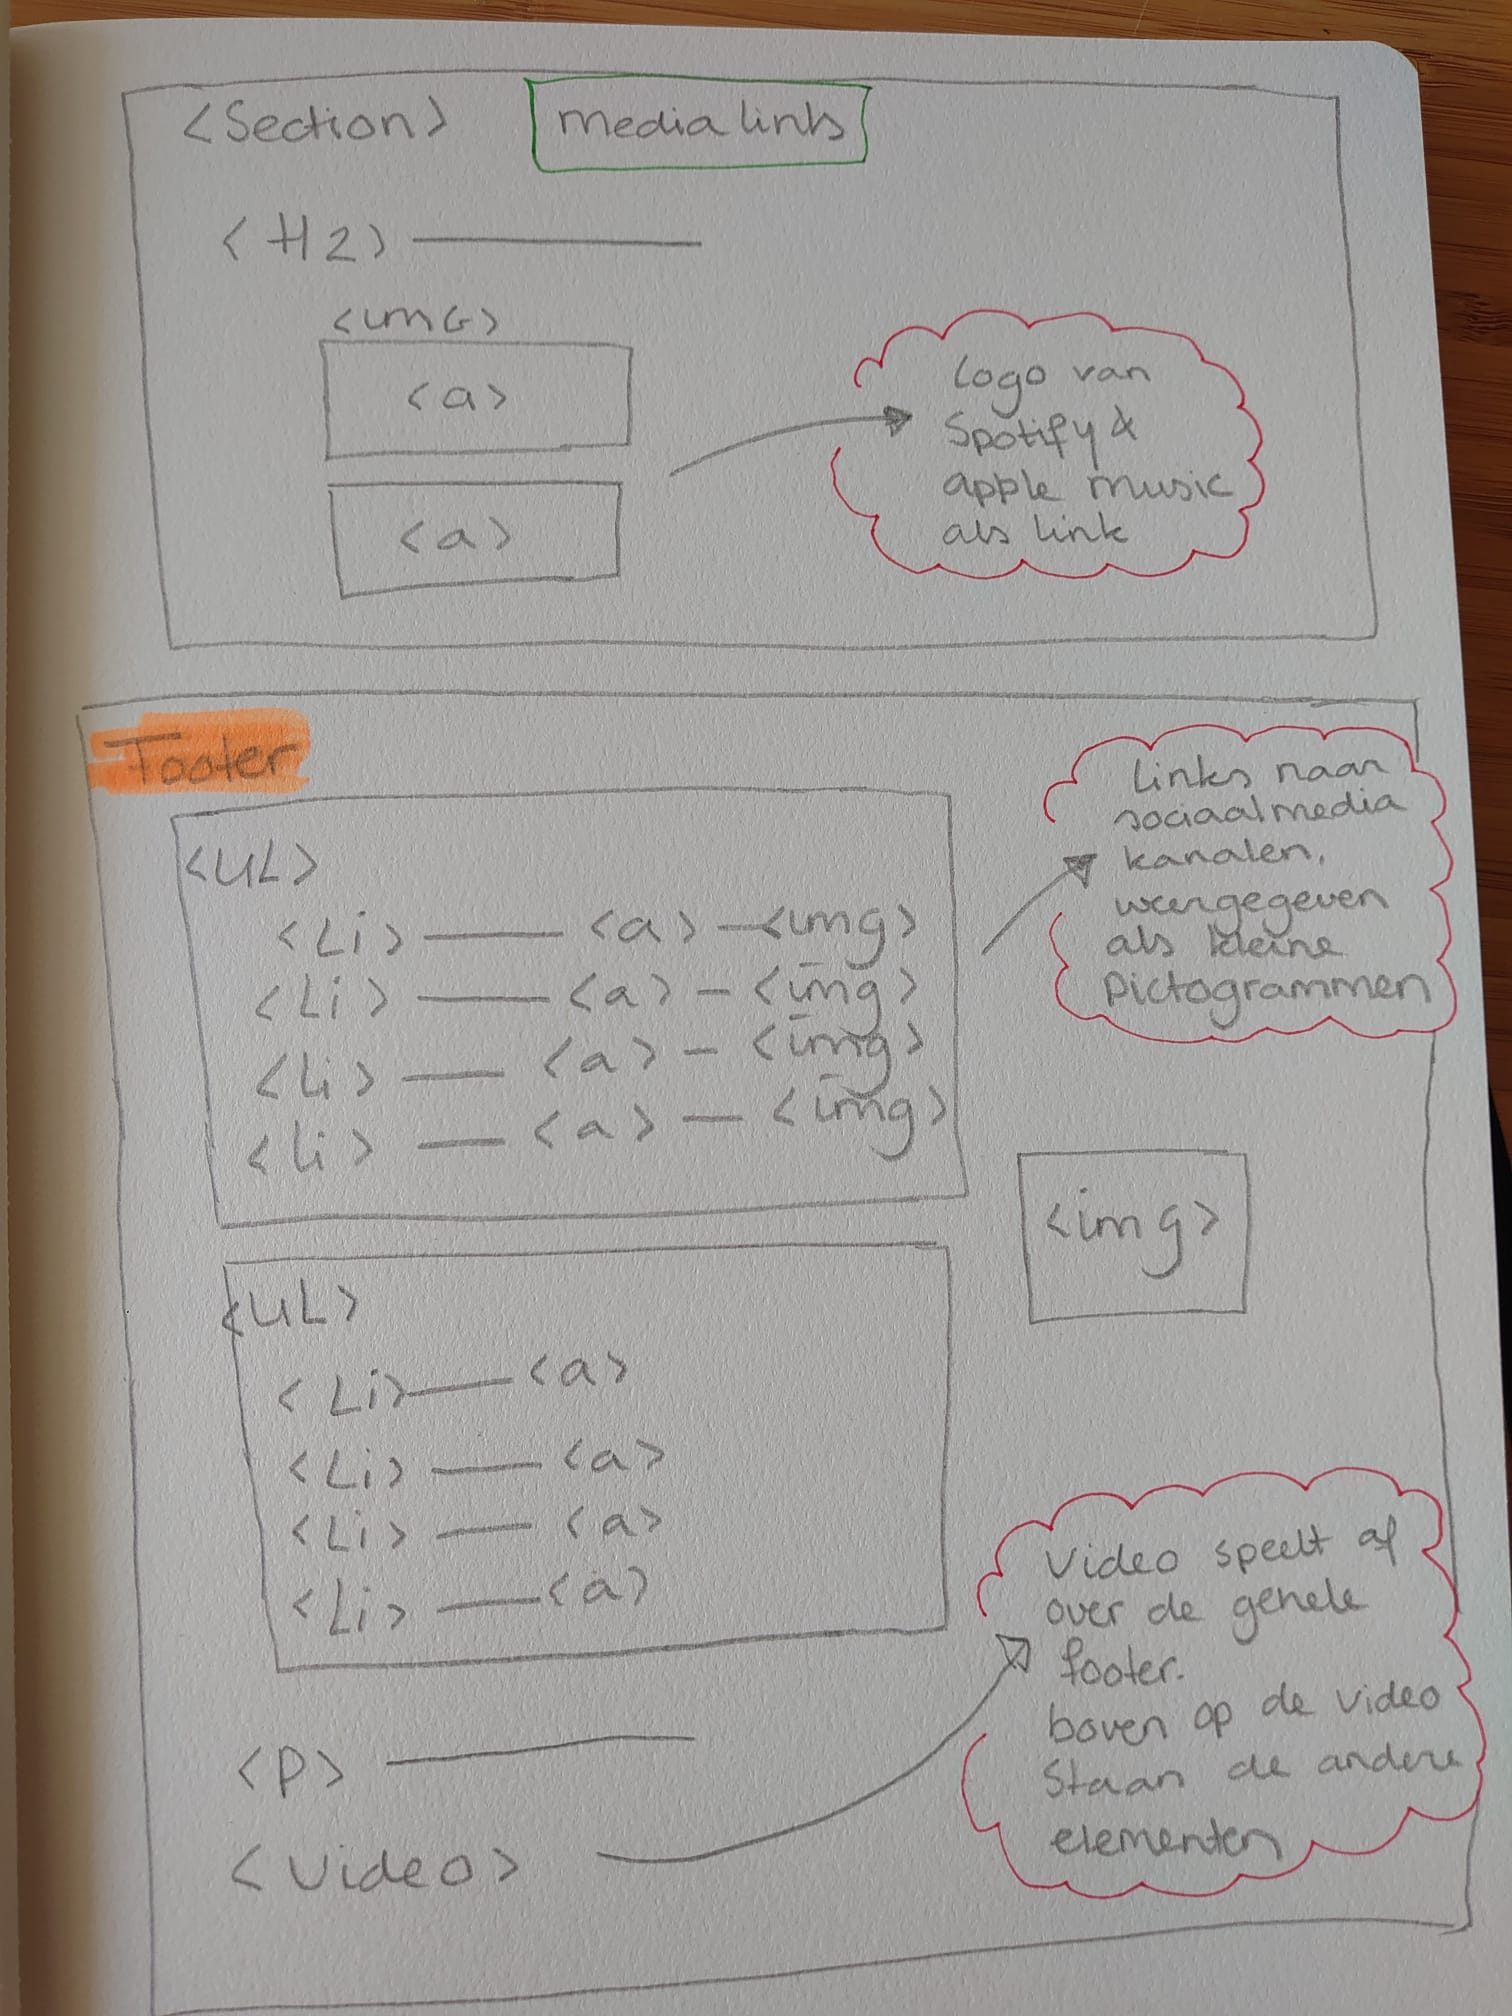 <Section> media links
<H2>
<imG>
<a>
<a>
Logo van
Spotify &
apple music
als link
Footer
<UL>
<Li> <a> - <img>
<Li> <a> - <img>
<Li> <a> - <img>
<Li> <a> - <img>
links naar
sociaalmedia
kanalen,
weergegeven
als kleine
Pictogrammen
<img>
<UL>
<Li> <a>
<Li> <a>
<Li> <a>
<Li> <a>
<P>
<video>
Video speelt af
over de gehele
footer.
boven op de video
Staan de andere
elementen